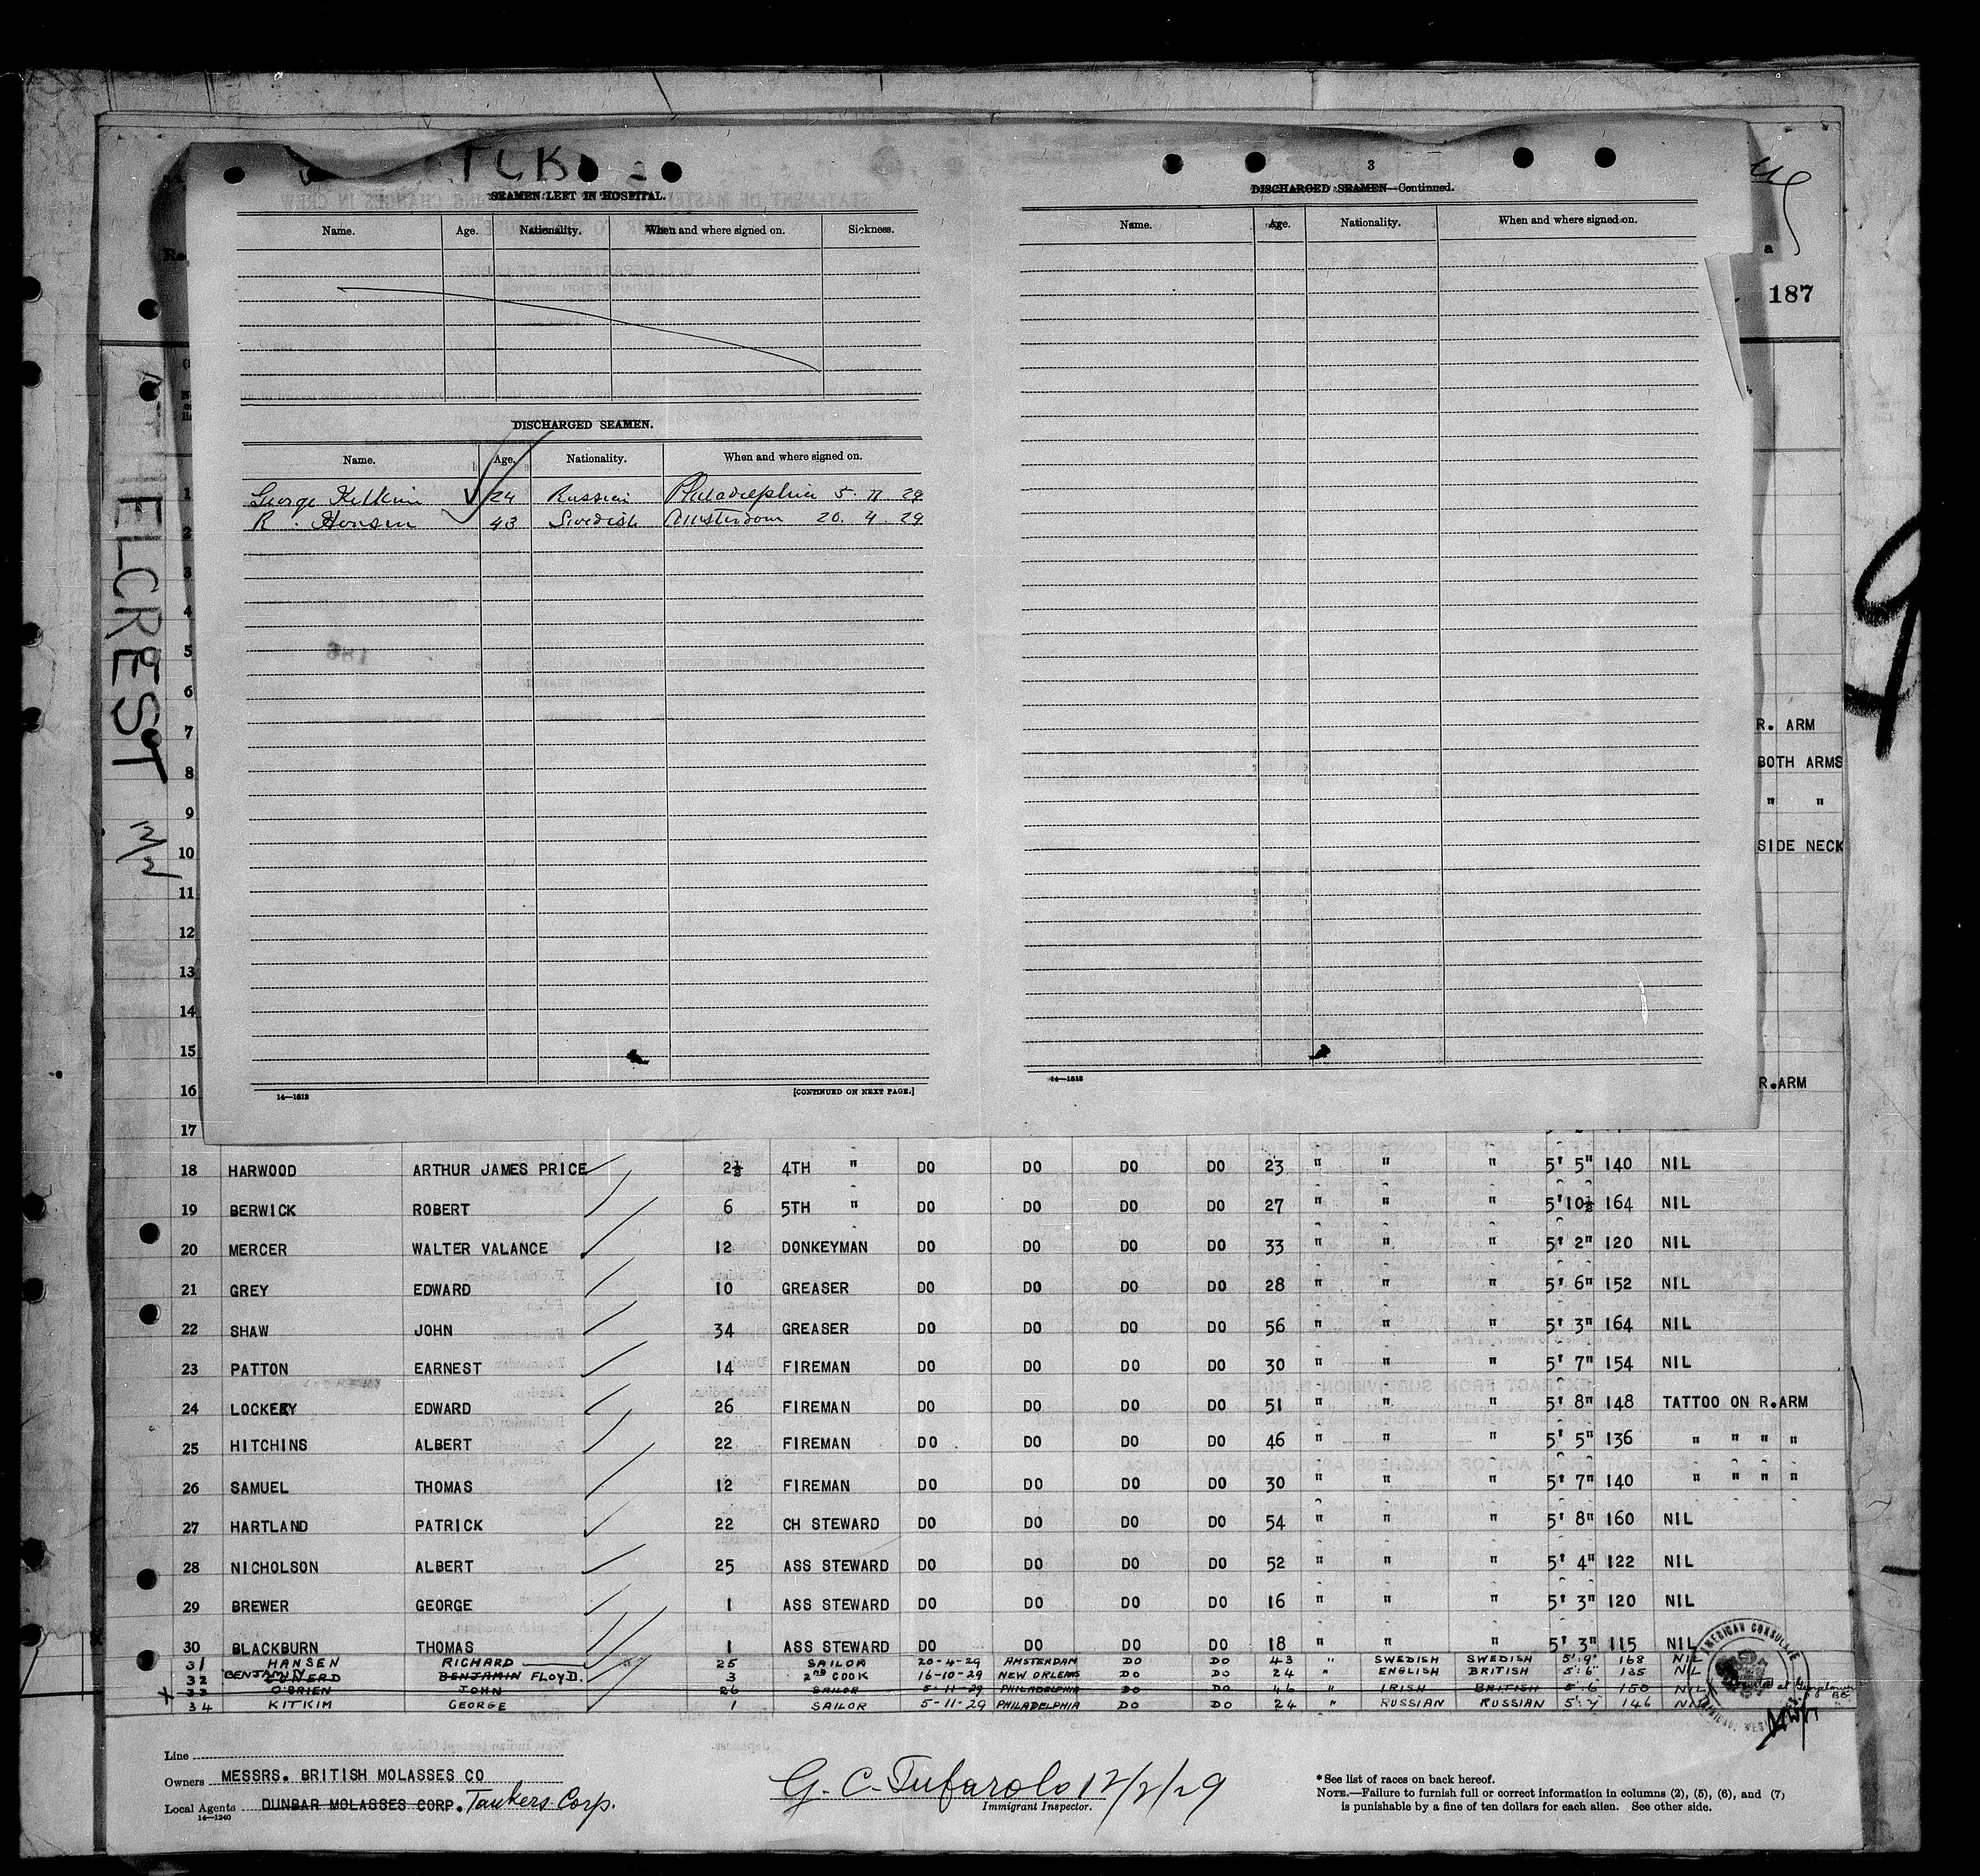 SEAMEN LEFT IN HOSPITAL.
Name. Age. Nationality. When and where signed on. Sickness.
DISCHARGED SEAMEN.
Name. Age. Nationality. When and where signed on.
George Kitkim 24 Russian Philadelphia 5. 11 29
R. Hansen 43 Swedish Amsterdam 20. 4. 29
14—1813
[CONTINUED ON NEXT PAGE.]
3
DISCHARGED SEAMEN—Continued.
Name. Age. Nationality. When and where signed on.
14—1813
187
HELCREST
12/2
9
1
2
3
4
5
6
7 R. ARM
8 BOTH ARMS
9 " "
10 SIDE NECK
11
12
13
14
15
16 R.ARM
17
18 HARWOOD ARTHUR JAMES PRICE 2½ 4TH " DO DO DO DO 23 " " " 5' 5" 140 NIL
19 BERWICK ROBERT 6 5TH " DO DO DO DO 27 " " " 5'10½ 164 NIL
20 MERCER WALTER VALANCE 12 DONKEYMAN DO DO DO DO 33 " " " 5' 2" 120 NIL
21 GREY EDWARD 10 GREASER DO DO DO DO 28 " " " 5' 6" 152 NIL
22 SHAW JOHN 34 GREASER DO DO DO DO 56 " " " 5' 3" 164 NIL
23 PATTON EARNEST 14 FIREMAN DO DO DO DO 30 " " " 5' 7" 154 NIL
24 LOCKERY EDWARD 26 FIREMAN DO DO DO DO 51 " " " 5' 8" 148 TATTOO ON R.ARM
25 HITCHINS ALBERT 22 FIREMAN DO DO DO DO 46 " " " 5' 5" 136 " " " "
26 SAMUEL THOMAS 12 FIREMAN DO DO DO DO 30 " " " 5' 7" 140 " " " "
27 HARTLAND PATRICK 22 CH STEWARD DO DO DO DO 54 " " " 5' 8" 160 NIL
28 NICHOLSON ALBERT 25 ASS STEWARD DO DO DO DO 52 " " " 5' 4" 122 NIL
29 BREWER GEORGE 1 ASS STEWARD DO DO DO DO 16 " " " 5' 3" 120 NIL
30 BLACKBURN THOMAS 1 ASS STEWARD DO DO DO DO 18 " " " 5' 3" 115 NIL
31 HANSEN RICHARD 25 SAILOR 20-4-29 AMSTERDAM DO DO 43 " SWEDISH SWEDISH 5'.9" 168 NIL
32 BENJAMIN BENJAMIN FLOYD. 3 2ND COOK 16-10-29 NEW ORLEANS DO DO 24 " ENGLISH BRITISH 5'.6" 135 NIL
33 O'BRIEN JOHN 26 SAILOR 5-11-29 PHILADELPHIA DO DO 46 " IRISH BRITISH 5'.6 150 NIL
34 KITKIM GEORGE 1 SAILOR 5-11-29 PHILADELPHIA DO DO 24 " RUSSIAN RUSSIAN 5'.7 146 NIL
AMERICAN CONSULATE
Line
Owners MESSRS. BRITISH MOLASSES CO
Local Agents DUNBAR MOLASSES CORP. Tankers Corp.
14—1240
G. C. Tufarolo 12/2/29
Immigrant Inspector.
*See list of races on back hereof.
NOTE.—Failure to furnish full or correct information in columns (2), (5), (6), and (7)
is punishable by a fine of ten dollars for each alien. See other side.